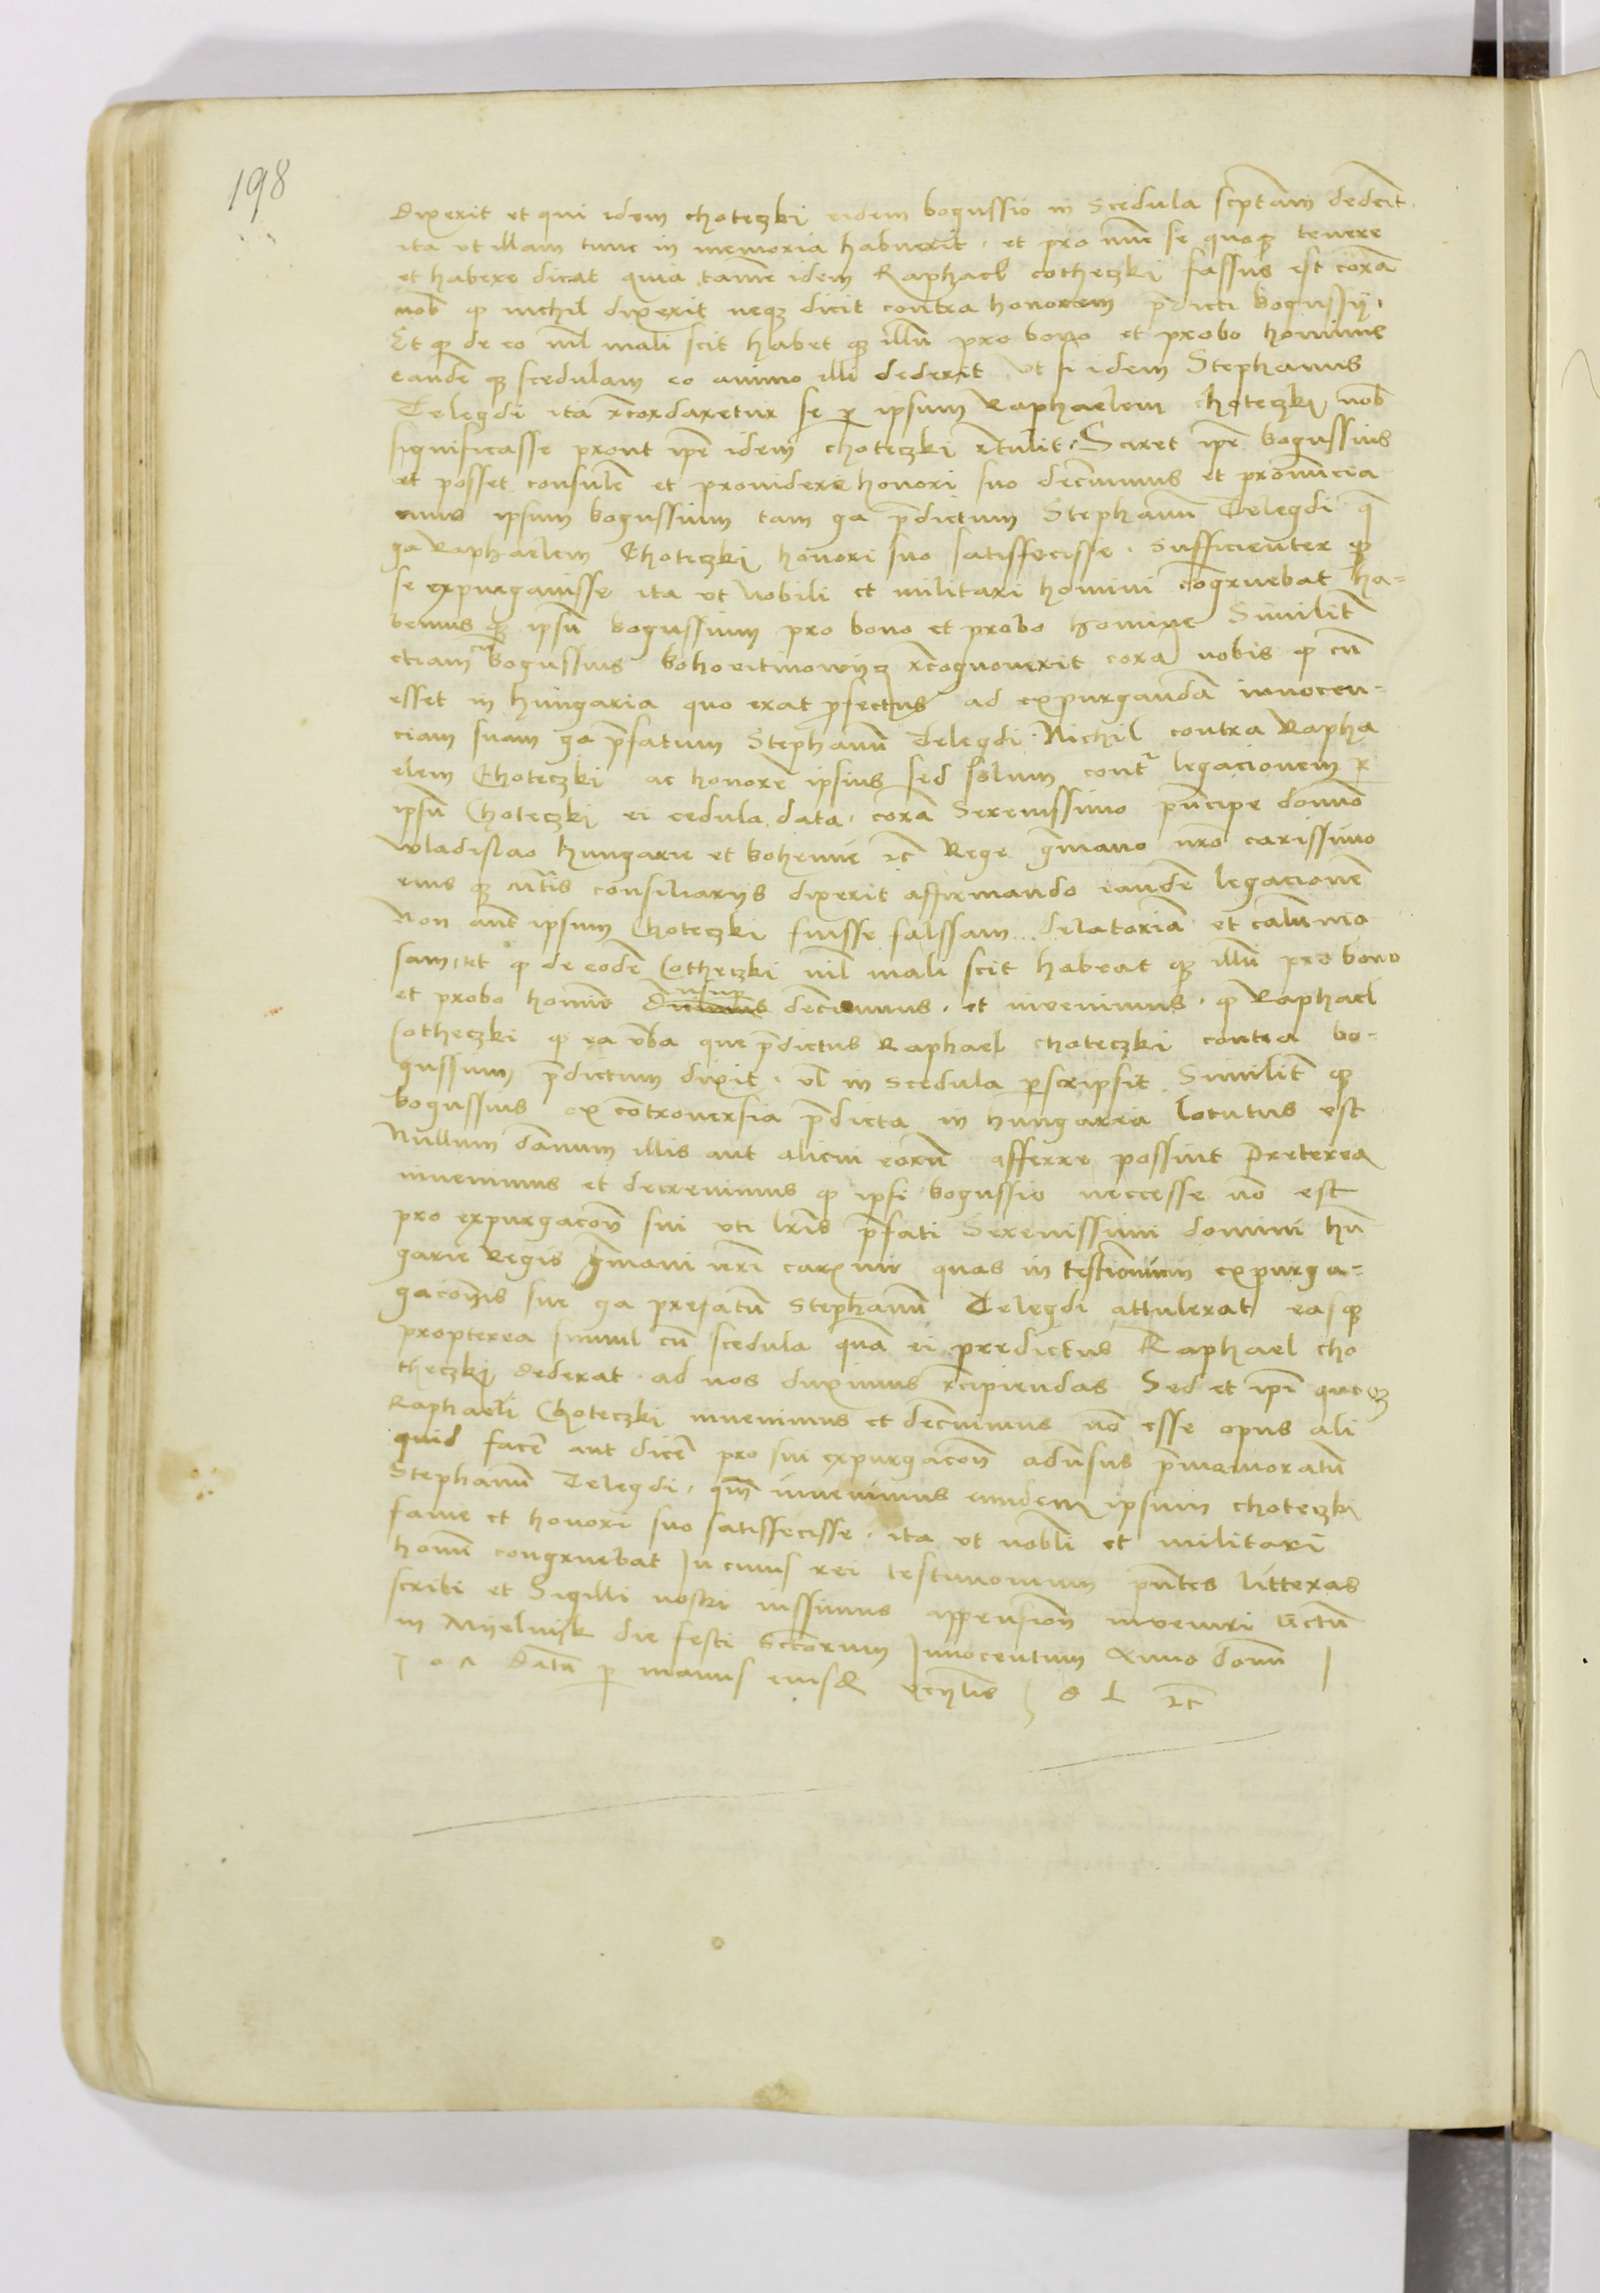 198
dixerit et qui idem choteczki eidem bogussio in scedula scptam dedcit
ita ut illam tunc in memoria habuerit. et pro nunc se quoqz tenere
et habere dicat quia tamē idem Raphael cotheczki fassus est corā
nob q nichil dixerit neqz dicit contra honorem pdicti bogussij.
Et q de eo nil mali scit habet qz illū pro bono et probo homine
eandē qz scedulam eo animo illi dederit ut si idem Stephanus
Telegdi ita rcordaretur se p ipsum Raphaelem choteczki nob
significasse prout ipe idem choteczki rtulit. Sciret ipe bogussius
et posset consulē et providere honori suo decnimus et pronuncia
mus ipsum bogussium tam ga pdictum Stephanū Telegdi q̄
ga Raphaelem Choteczki honori suo satisfecisse. sufficienter qz
se expurgauisse ita ut nobili et militari homini cōgruebat ha=
bemus qz ipsū bogussium pro bono et probo homine Similit
etiam bogussius bohovitinowijcz rcognoverit corā nobis q cū
esset in hungaria quo erat pfectus ad expurgandā innocen=
ciam suam ga pfatum Stephanū Telegdi. Nichil contra Rapha
elem Choteczki ac honorē ipsius sed solum contr legacionem p
ipsū Choteczki ei cedula data. corā Serenissimo pncipe domno
wladislao hungarie et bohemie zc Rege gmano nro carissimo
eius qz mltis consiliarijs dixerit affirmando eandē legacionē
Non aut ipsum Choteczki fuisse falssam delatoriā et calumnio
sam. et q de eodē Cotheczki nil mali scit habeat qz illū pro bono
et probo homine decnimus. et invenimus. q Raphael
Cotheczki q ea vba que pdictus Raphael choteczki contra bo=
gussium pdictum dixit. vl in scedula pscripsit Similit qz
bogussius ex controversia pdicta in hungaria locutus est
Nullum damnum illis aut alicui eorū afferre possint Preterea
invenimus et decrevimus q ipsi bogussio necesse nō est
pro expurgacōn sui uti lris pfati Serenissimi domini hū
garie Regis gmani nri carmi quas in testimonium expurga=
gacōnis sue ga prefatū Stephanū Telegdi attulerat easqz
propterea simul cū scedula quā ei predictus Raphael cho
theczki dederat. ad nos duximus rcipiendas Sed et ipi quoqz
Raphaeli Choteczki invenimus et decnimus nō esse opus ali
quid facē aut dicē pro sui expurgacōn aduersus pmemoratū
Stephanū Telegdi. qm invenimus eundem ipsum choteczki
fame et honori suo satisfecisse. ita ut nobli et militari
homī congruebat In cuius rei testimonium pntes litteras
scribi et Sigilli nostri iussimus appensiōn muniri Actū
in Myelnik die festi Sctorum Innocentum Anno domī 1
501 Datū p manus eiusd